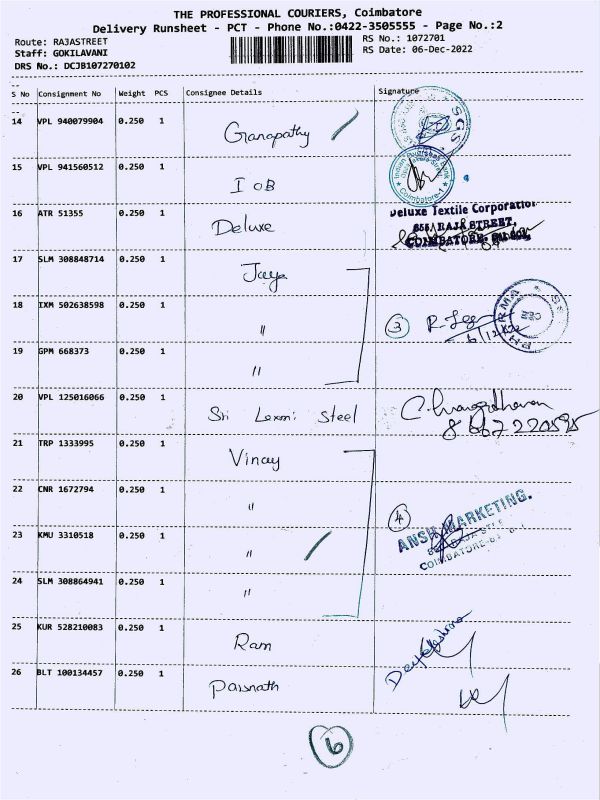 THE PROFESSIONAL COURIERS, Coimbatore
Delivery Runsheet - PCT - Phone No.:0422-3505555 - Page No.:2
Route: RAJASTREET
RS No.: 1072701
Staff: GOKILAVANI
RS Date: 06-Dec-2022
DRS No.: DCJB107270102
S No Consignment No Weight PCS Consignee Details Signature
14 VPL 940079904 0.250 1 Ganapathy SGS
15 VPL 941560512 0.250 1 IOB Indian Overseas Bank Coimbatore-1
16 ATR 51355 0.250 1 Deluxe Deluxe Textile Corporation
656, RAJA STREET,
COIMBATORE
17 SLM 308848714 0.250 1 Jaya
18 IXM 502638598 0.250 1 " 3 PHARMA
19 GPM 668373 0.250 1 "
20 VPL 125016066 0.250 1 Sri Laxmi Steel
21 TRP 1333995 0.250 1 Vinay
22 CNR 1672794 0.250 1 " 4
23 KMU 3310518 0.250 1 " ANSH MARKETING.
COIMBATORE
24 SLM 308864941 0.250 1 "
25 KUR 528210083 0.250 1 Ram
26 BLT 100134457 0.250 1 Parsnath
6